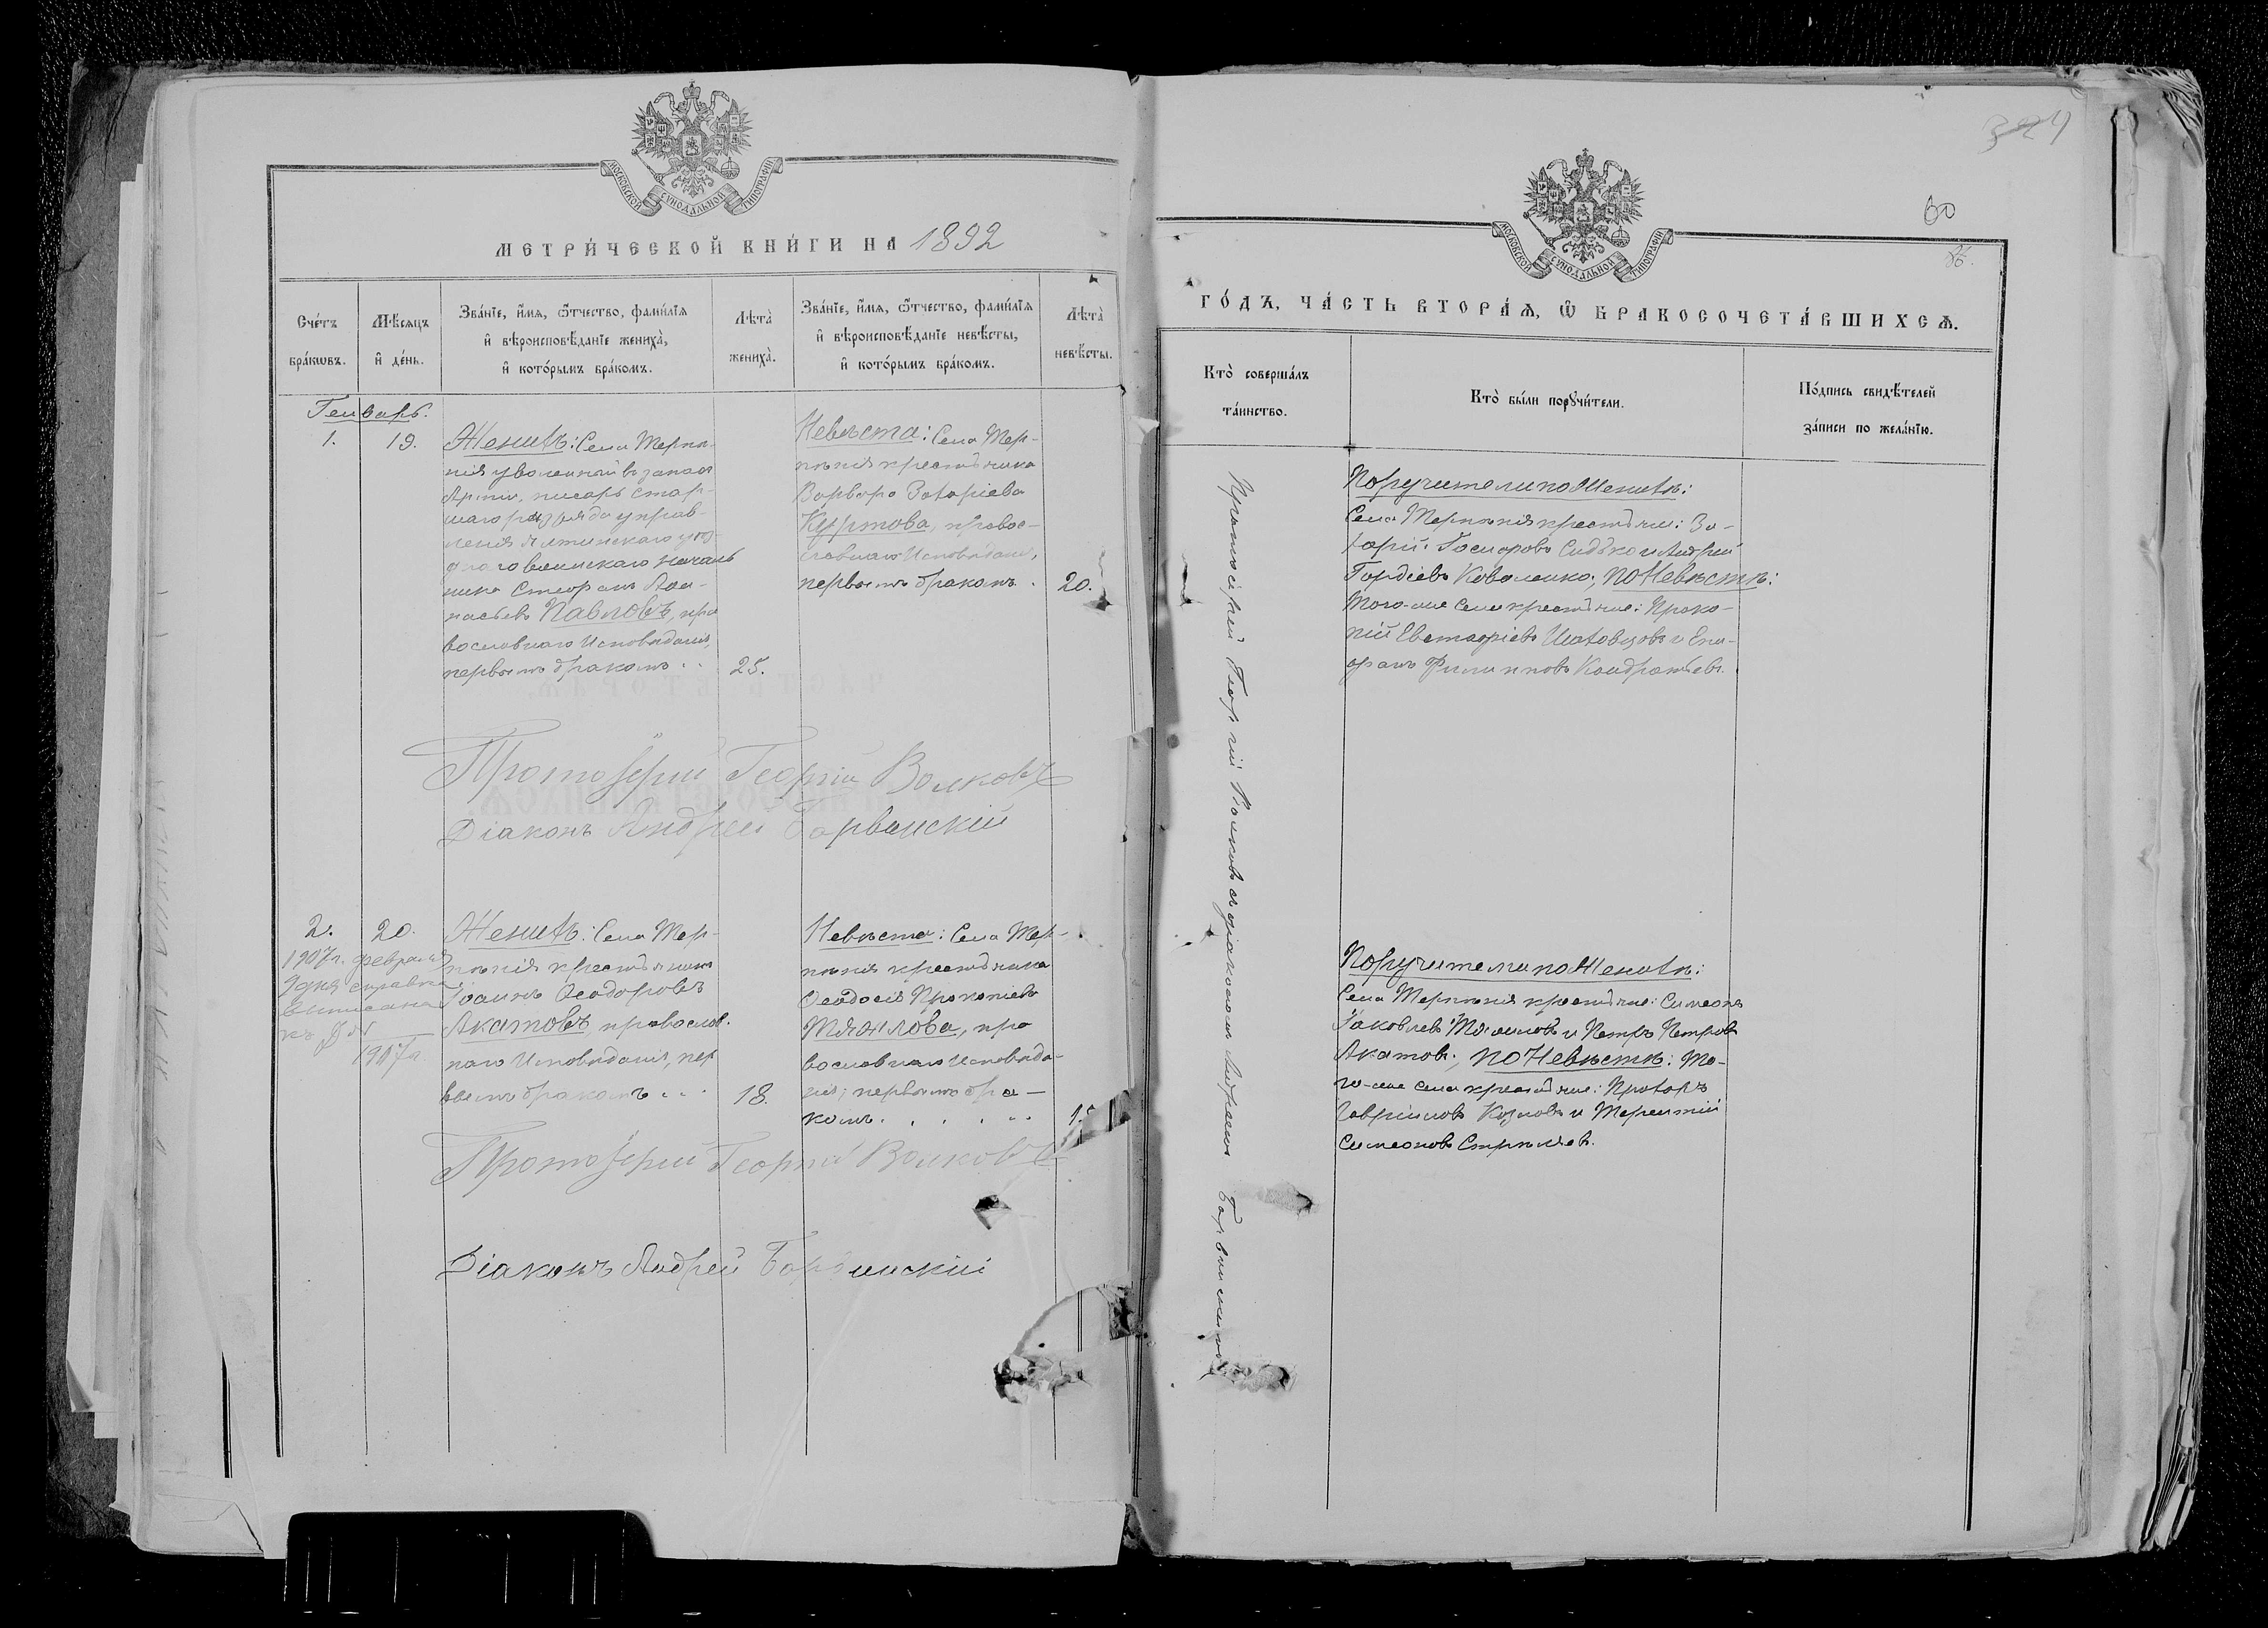 МОСКОВСКОЙ СУНОДАЛЬНОЙ ТИПОГРАФІИ
МЕТРИ́ЧЕСКОЙ КНИ́ГИ НА 1892
Сче́тъ бра́кωвъ.
Мѣ́сяцъ и҆ де́нь.
Зва́нїе, и҆́мѧ, ѻ҆́тчество, фами́лїѧ
и҆ вѣроисповѣ́данїе жениха̀,
и҆ кото́рымъ бра́комъ.
Лѣта̀ жениха̀.
Зва́нїе, и҆́мѧ, ѻ҆́тчество, фами́лїѧ
и҆ вѣроисповѣ́данїе невѣ́сты,
и҆ кото́рымъ бра́комъ.
Лѣта̀ невѣ́сты.
Генварь.
1.
19.
Женихъ: Села Терпѣ-
нія уволенный въ запасъ
Арміи, писарь стар-
шаго разряда управ-
ленія Ялтинскаго уѣз-
днаго воинскаго началь
ника Стефанъ Аѳа-
насьевъ Павловъ, пра
вославнаго Исповѣданія,
первымъ бракомъ . .
25.
Невѣста: Села Тер-
пѣнія крестьянка
Варвара Захаріева
Куртова, правос-
лавнаго Исповѣданія,
первымъ бракомъ .
20.
Протоіерей Георгій Волковъ
Діаконъ Андрей Барвинскій
2.
20.
1907 г. февраля
9 дня справка
выписана
1907 г.
Женихъ: Села Тер-
пѣнія крестьянинъ
Іоаннъ Ѳеодоровъ
Акатовъ православ.
наго Исповѣданія, пер
вымъ бракомъ . . .
18.
Невѣста: Села Тер-
пѣнія крестьянка
Ѳеодосія Прокопіева
Тяжлова, пра
вославнаго Исповѣда-
нія; первымъ бра-
комъ. . . . .
Протоіерей Георгій Волковъ
Діаконъ Андрей Барвинскій
324
60
МОСКОВСКОЙ СУНОДАЛЬНОЙ ТИПОГРАФІИ
ГО́ДЪ, ЧА́СТЬ ВТОРА́Ѧ, Ѽ БРАКОСОЧЕТА́ВШИХСѦ.
Кто̀ соверша́лъ
та́инство.
Кто̀ бы́ли порꙋчи́тели.
По́дпись свидѣ́телей
за́писи по жела́нїю.
Протоіерей Георгій Волковъ съ діакономъ Андреемъ Барвинскимъ
Поручители по Женихѣ:
Села Терпѣнія крестьяне: За-
харій Госпаровъ Сидько и Андрей
Гордіевъ Коваленко; по Невѣстѣ:
Того-же Села крестьяне: Проко-
пій Евстафіевъ Шаховцовъ и Епи-
фанъ Филипповъ Кондратьевъ.
Поручители по Женихѣ:
Села Терпѣнія крестьяне: Симеонъ
Іаковлевъ Тяжловъ и Петръ Петровъ
Акатовъ; по Невѣстѣ: То-
го-же села крестьяне: Прохоръ
Гавриловъ Козловъ и Терентій
Симеоновъ Стрѣляевъ.